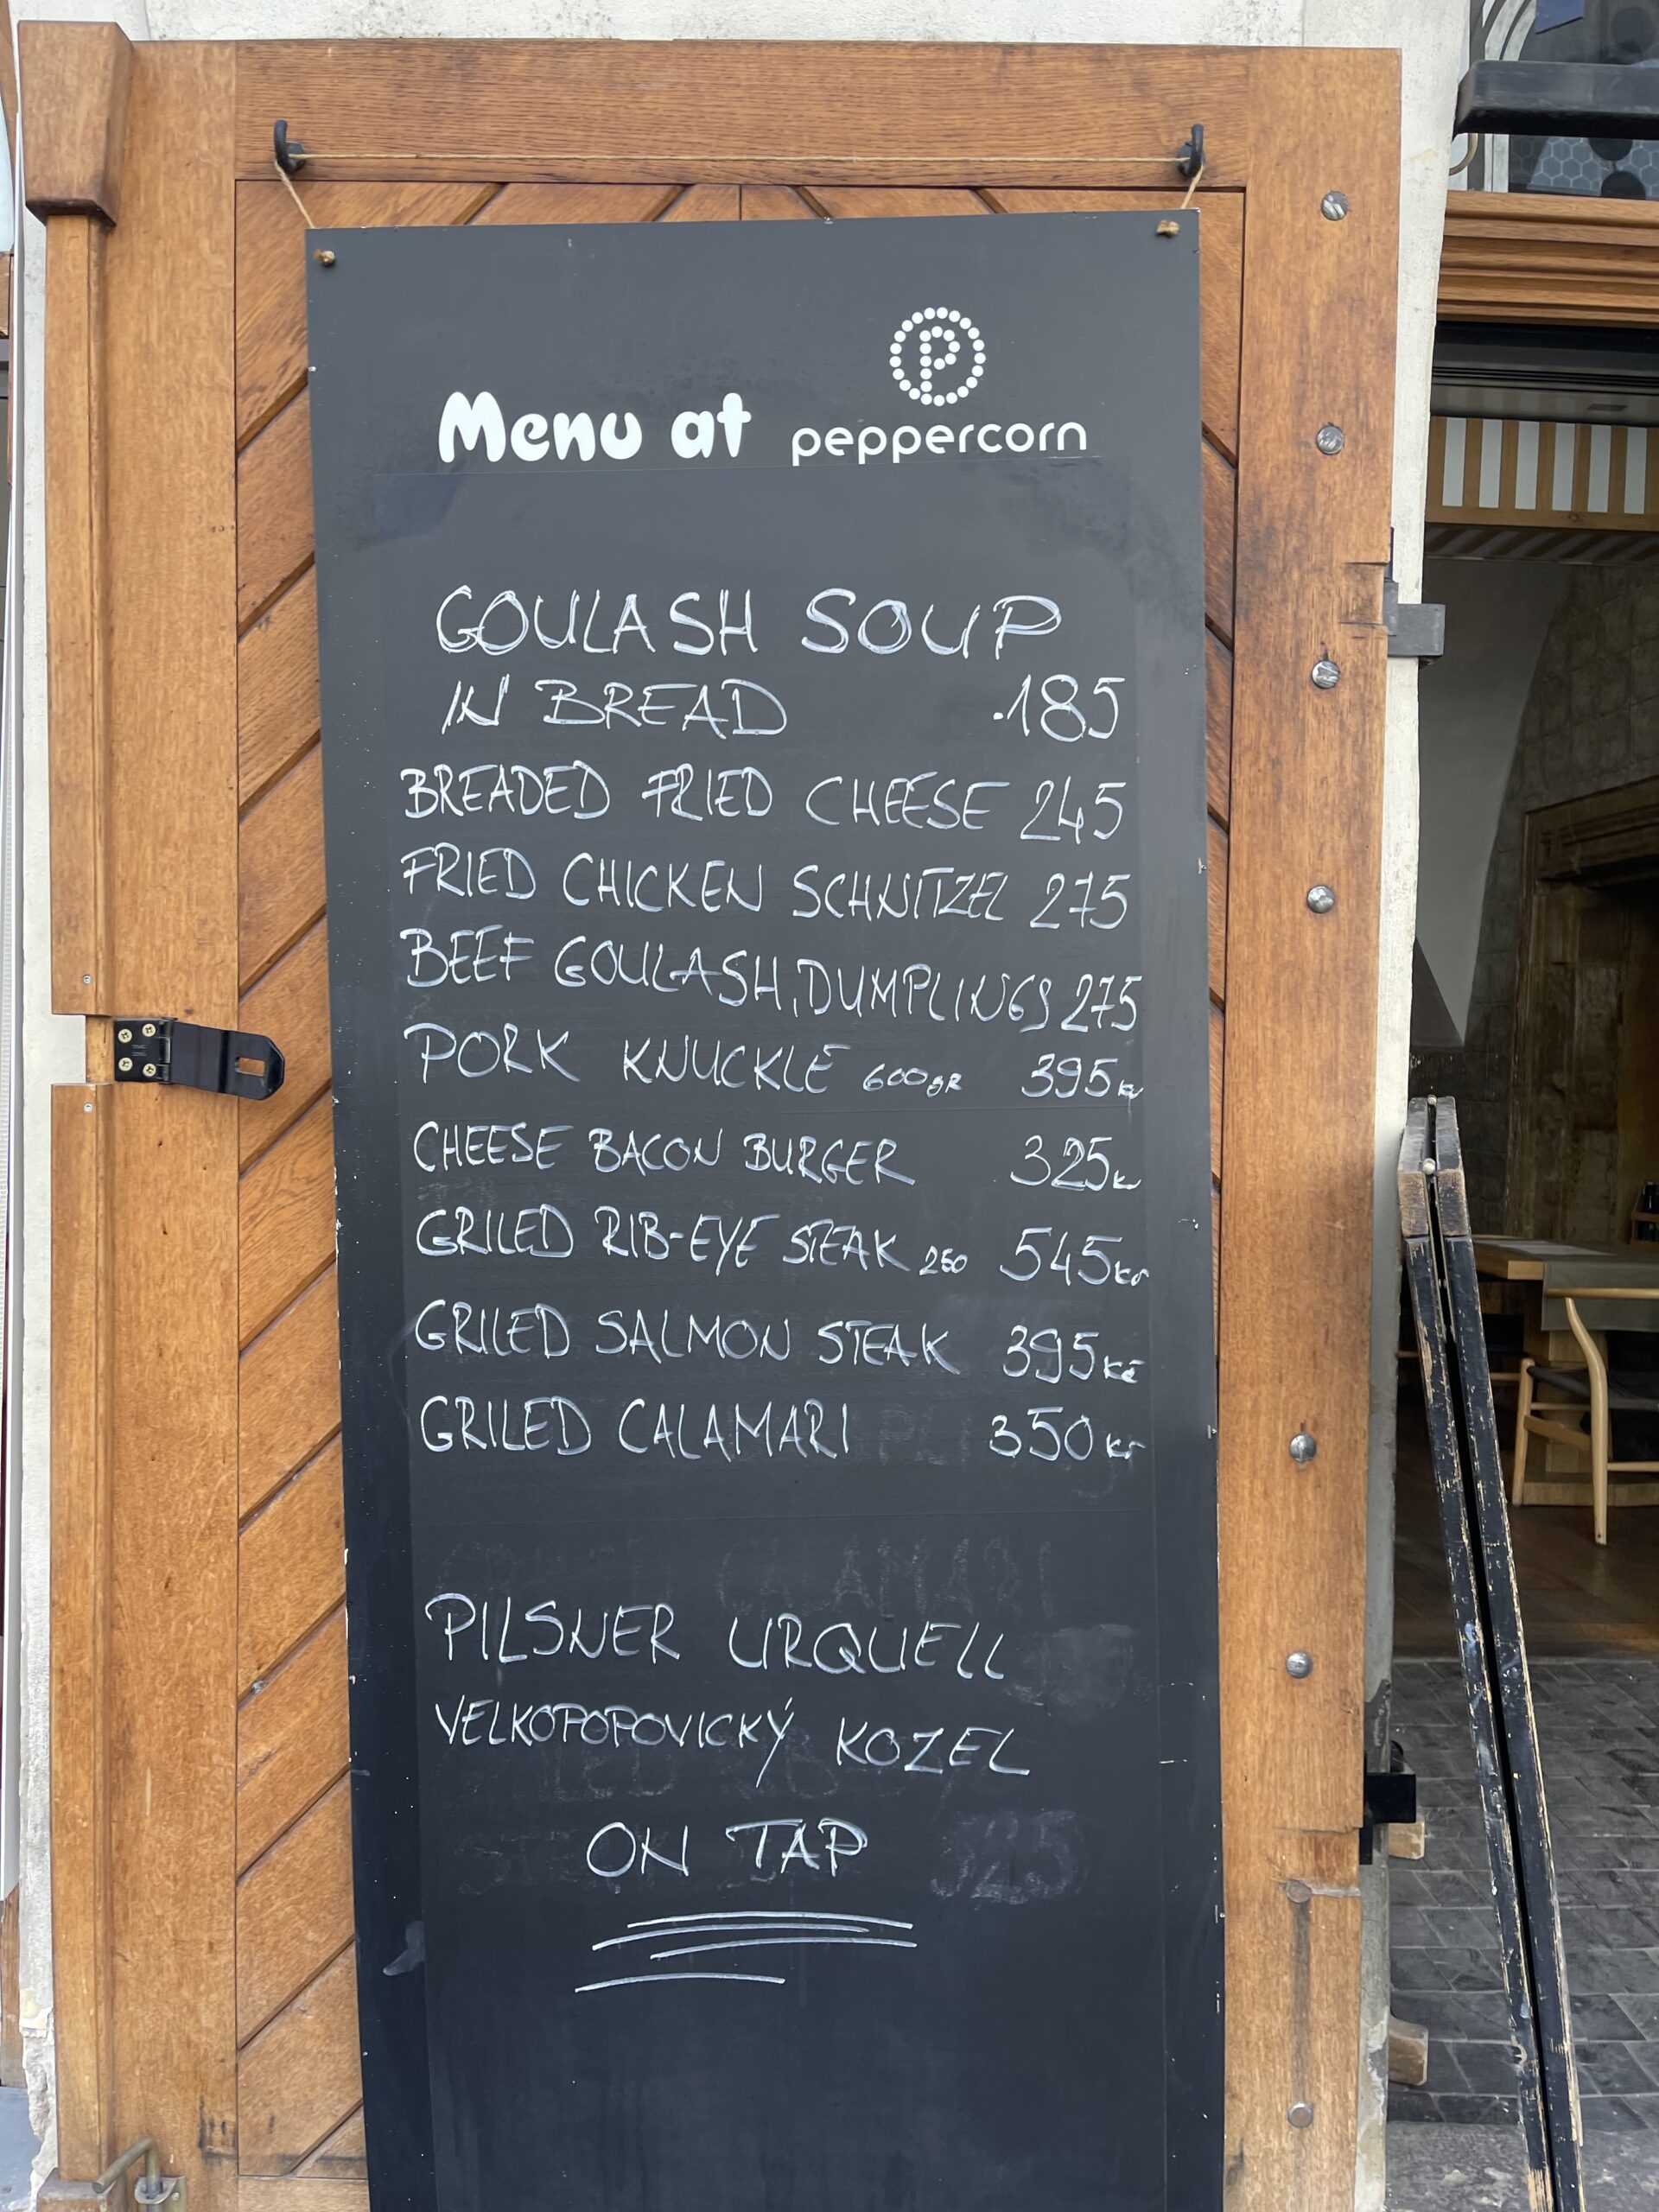 P
Menu at peppercorn
GOULASH SOUP
IN BREAD 185
BREADED FRIED CHEESE 245
FRIED CHICKEN SCHNITZEL 275
BEEF GOULASH, DUMPLINGS 275
PORK KNUCKLE 600GR 395Kč
CHEESE BACON BURGER 325Kč
GRILED RIB-EYE STEAK 250 545Kč
GRILED SALMON STEAK 395Kč
GRILED CALAMARI 350Kč
PILSNER URQUELL
VELKOPOPOVICKÝ KOZEL
ON TAP